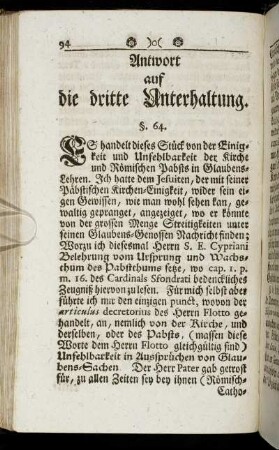 94 ❀ )o( ❀
Antwort
auf
die dritte Unterhaltung.
§. 64.
ES handelt dieses Stück von der Einig-
keit und Unfehlbarkeit der Kirche
und Römischen Pabsts in Glaubens-
Lehren. Ich hatte dem Jesuiten, der mit seiner
Päbstischen Kirchen-Einigkeit, wider sein ei-
gen Gewissen, wie man wohl sehen kan, ge-
waltig gepranget, angezeiget, wo er könnte
von der grossen Menge Streitigkeiten unter
seinen Glaubens-Genossen Nachricht finden:
Worzu ich diesesmal Herrn S. E. Cypriani
Belehrung vom Ursprung und Wachs-
thum des Pabstthums setze, wo cap. 1. p.
m. 16. des Cardinals Sfondrati bedenckliches
Zeugniß hiervon zu lesen. Für mich selbst aber
führte ich nur den einzigen punct, wovon der
articulus decretorius des Herrn Flotto ge-
handelt, an, nemlich von der Kirche, und
derselben, oder des Pabsts, (massen diese
Worte dem Herrn Flotto gleichgültig sind)
Unfehlbarkeit in Aussprüchen von Glau-
bens-Sachen. Der Herr Pater gab getrost
für, zu allen Zeiten sey bey ihnen (Römisch-
Catho-